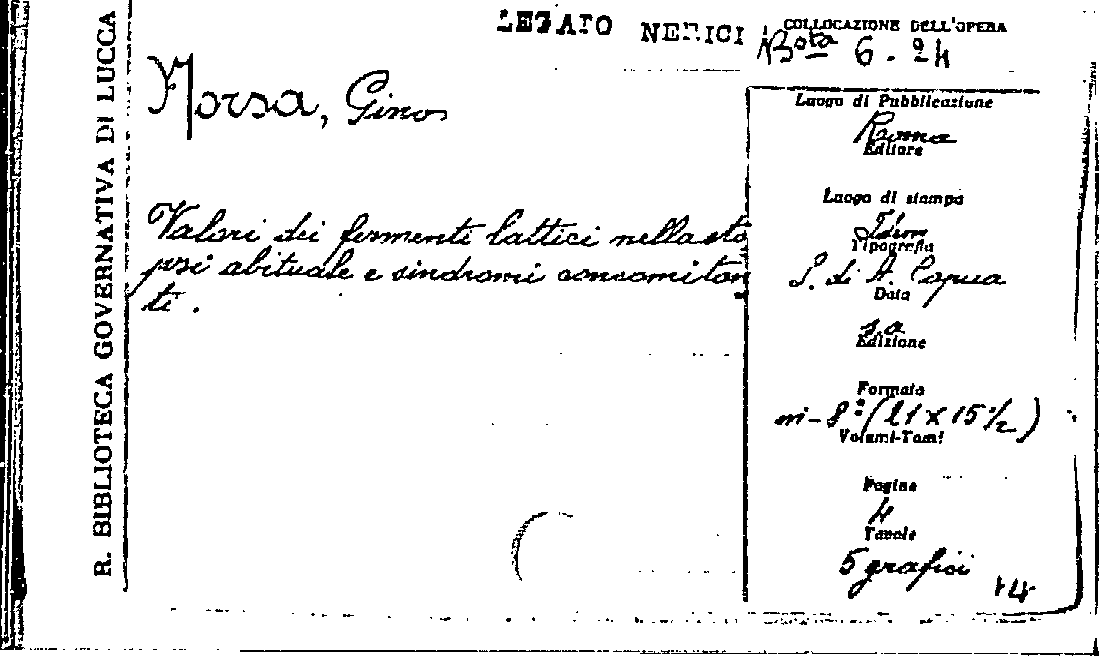 R. BIBLIOTECA GOVERNATIVA DI LUCCA
LEGATO NERICI
COLLOCAZIONE DELL'OPERA
Bta 6.24
Morsa, Gino
Valori dei fermenti lattici nella sti
psi abituale e sindromi concomitan
ti.
Luogo di Pubblicazione
Roma
Editore
Luogo di stampa
Idem
Tipografia
S. di A. Capua
Data
s.a.
Edizione
Formato
in-8° (21 x 15½)
Volumi-Tomi
Pagine
4
Tavole
5 grafici